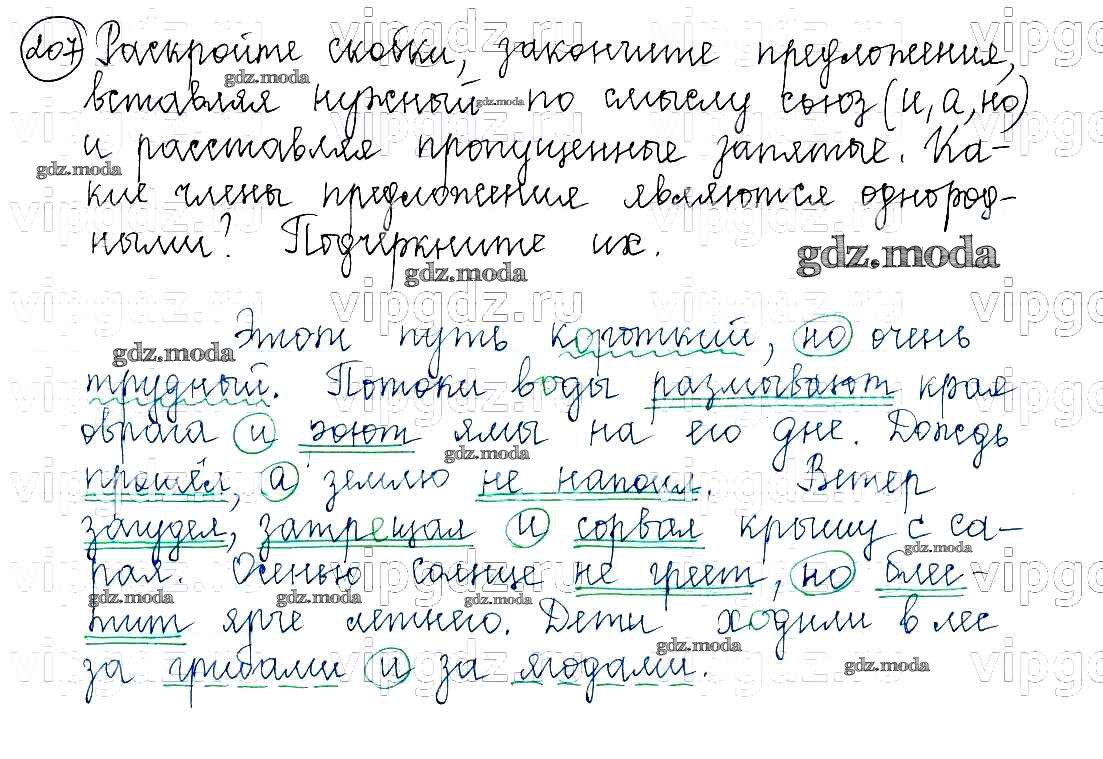 207 Раскройте скобки, закончите предложения,
вставляя нужный по смыслу союз (и, а, но)
и расставляя пропущенные запятые. Ка-
кие члены предложения являются однород-
ными? Подчеркните их.
Этот путь короткий, но очень
трудный. Потоки воды размывают края
оврага и роют ямы на его дне. Дождь
прошёл, а землю не напоил. Ветер
загудел, затрещал и сорвал крышу с са-
рая. Осенью солнце не греет, но блес-
тит ярче летнего. Дети ходили в лес
за грибами и за ягодами.
gdz.moda
vipgdz.ru